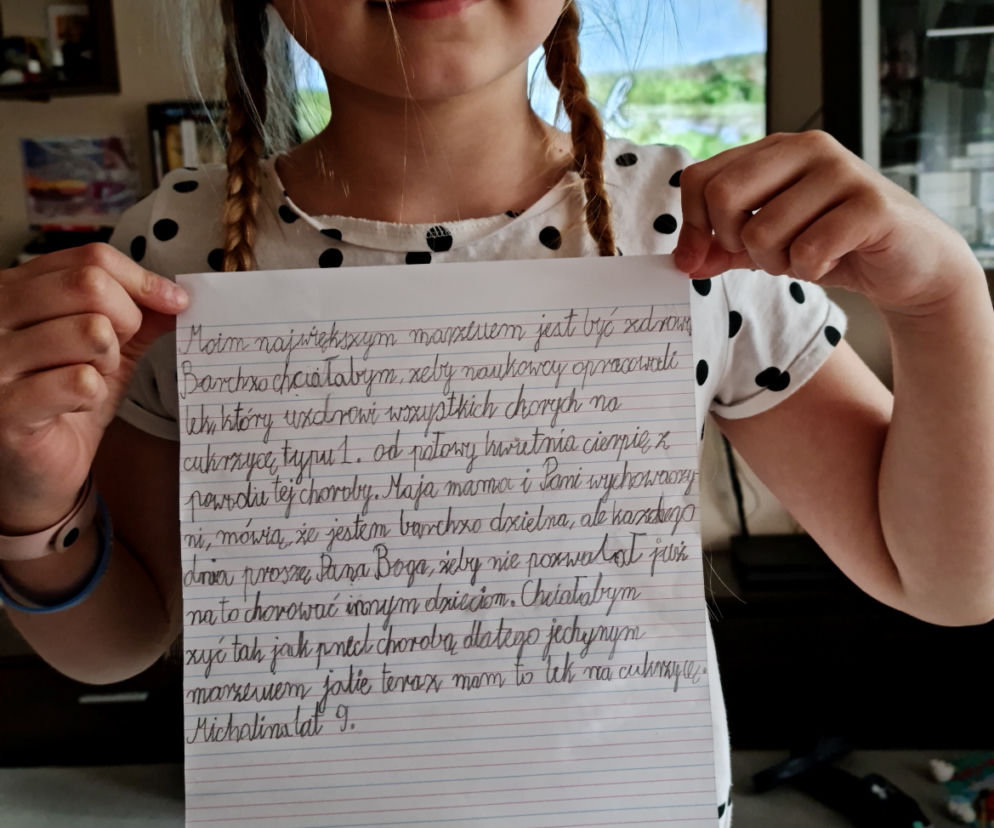 Moim największym marzeniem jest być zdrową
Bardzo chciałabym, żeby naukowcy opracowali
lek, który uzdrowi wszystkich chorych na
cukrzycę typu 1. od połowy kwietnia cierpię z
powodu tej choroby. Maja mama i Pani wychowawczy
ni, mówią, że jestem bardzo dzielna, ale każdego
dnia proszę Pana Boga, żeby nie pozwalał już
na to chorować innym dzieciom. Chciałabym
żyć tak jak przed chorobą dlatego jedynym
marzeniem jakie teraz mam to lek na cukrzycę.
Michalina lat 9.